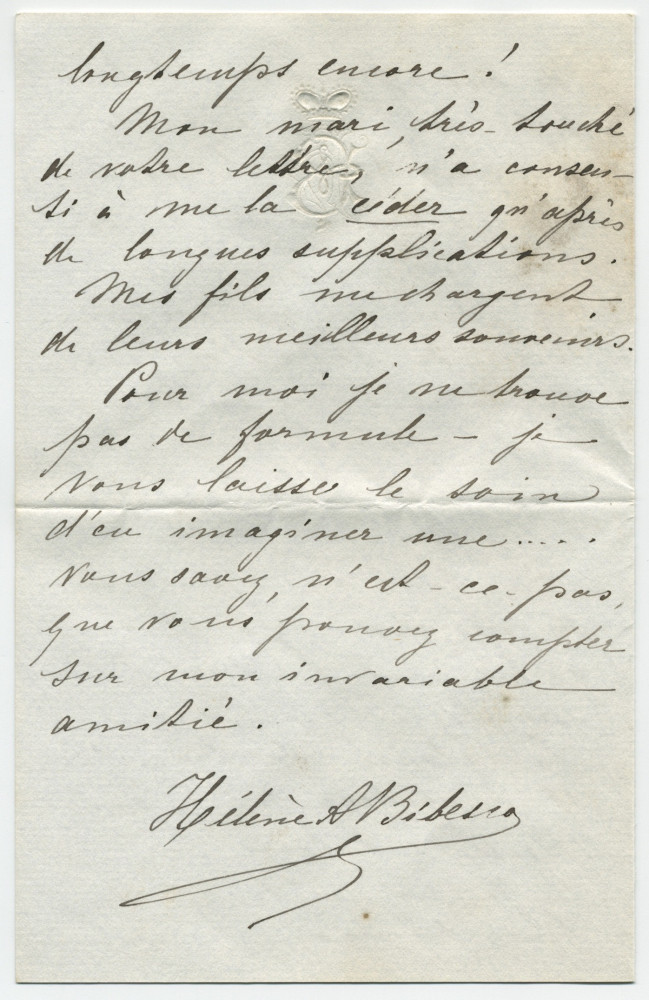 longtemps encore !
Mon mari, très-touché
de votre lettre, n'a consen-
ti à me la céder qu'après
de longues supplications.
Mes fils me chargent
de leurs meilleurs souvenirs.
Pour moi je ne trouve
pas de formule – je
vous laisse le soin
d'en imaginer une.....
Vous savez, n'est-ce-pas,
que vous pouvez compter
sur mon invariable
amitié.
Hélène A Bibesco